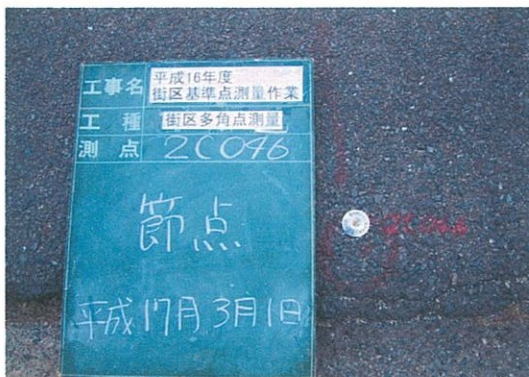 工事名 平成16年度
街区基準点測量作業
工種 街区多角点測量
測点 2C046
節点
平成17月3月1日
2C046